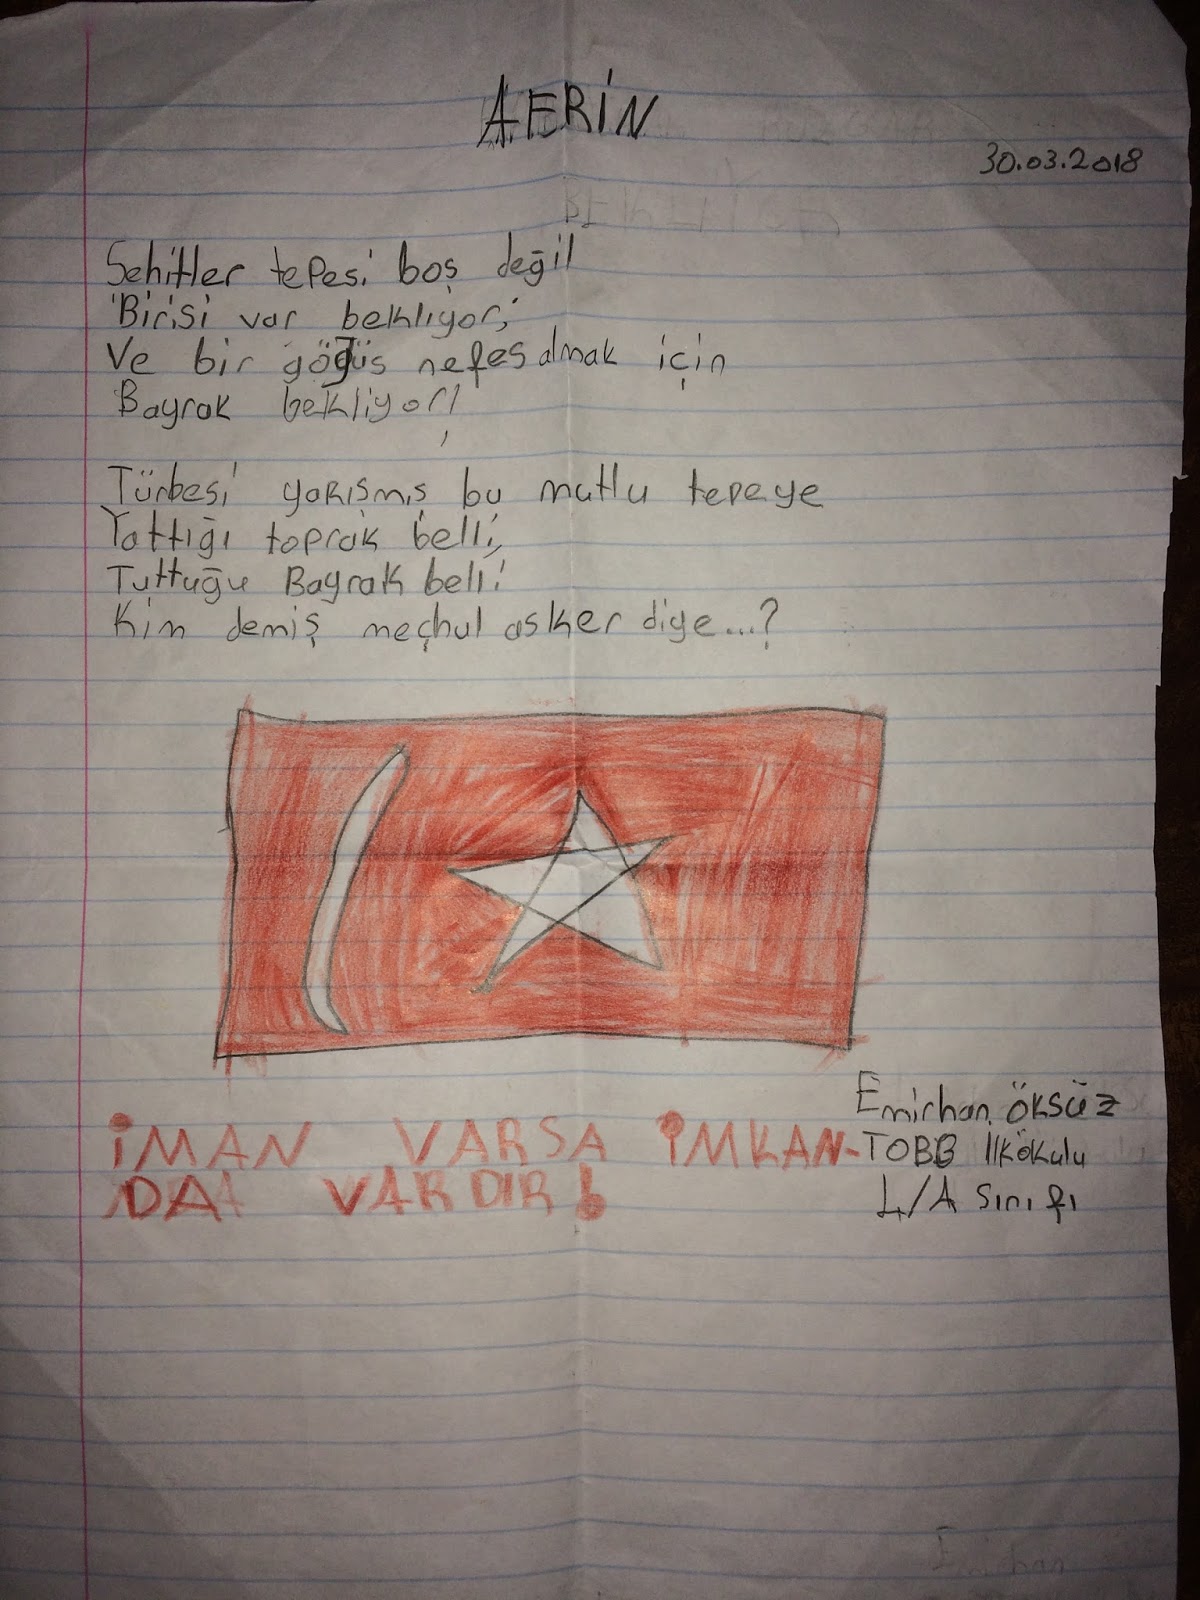 AFRİN
30.03.2018
Şehitler tepesi boş değil
Birisi var bekliyor,
Ve bir göğüs nefes almak için
Bayrak bekliyor!
Türbesi yakışmış bu mutlu tepeye
Yattığı toprak belli,
Tuttuğu Bayrak belli
Kim demiş meçhul asker diye...?
Emirhan ÖKSÜZ
İMAN VARSA İMKAN-
TOBB İlkökulu
DA VARDIR!
4/A Sınıfı